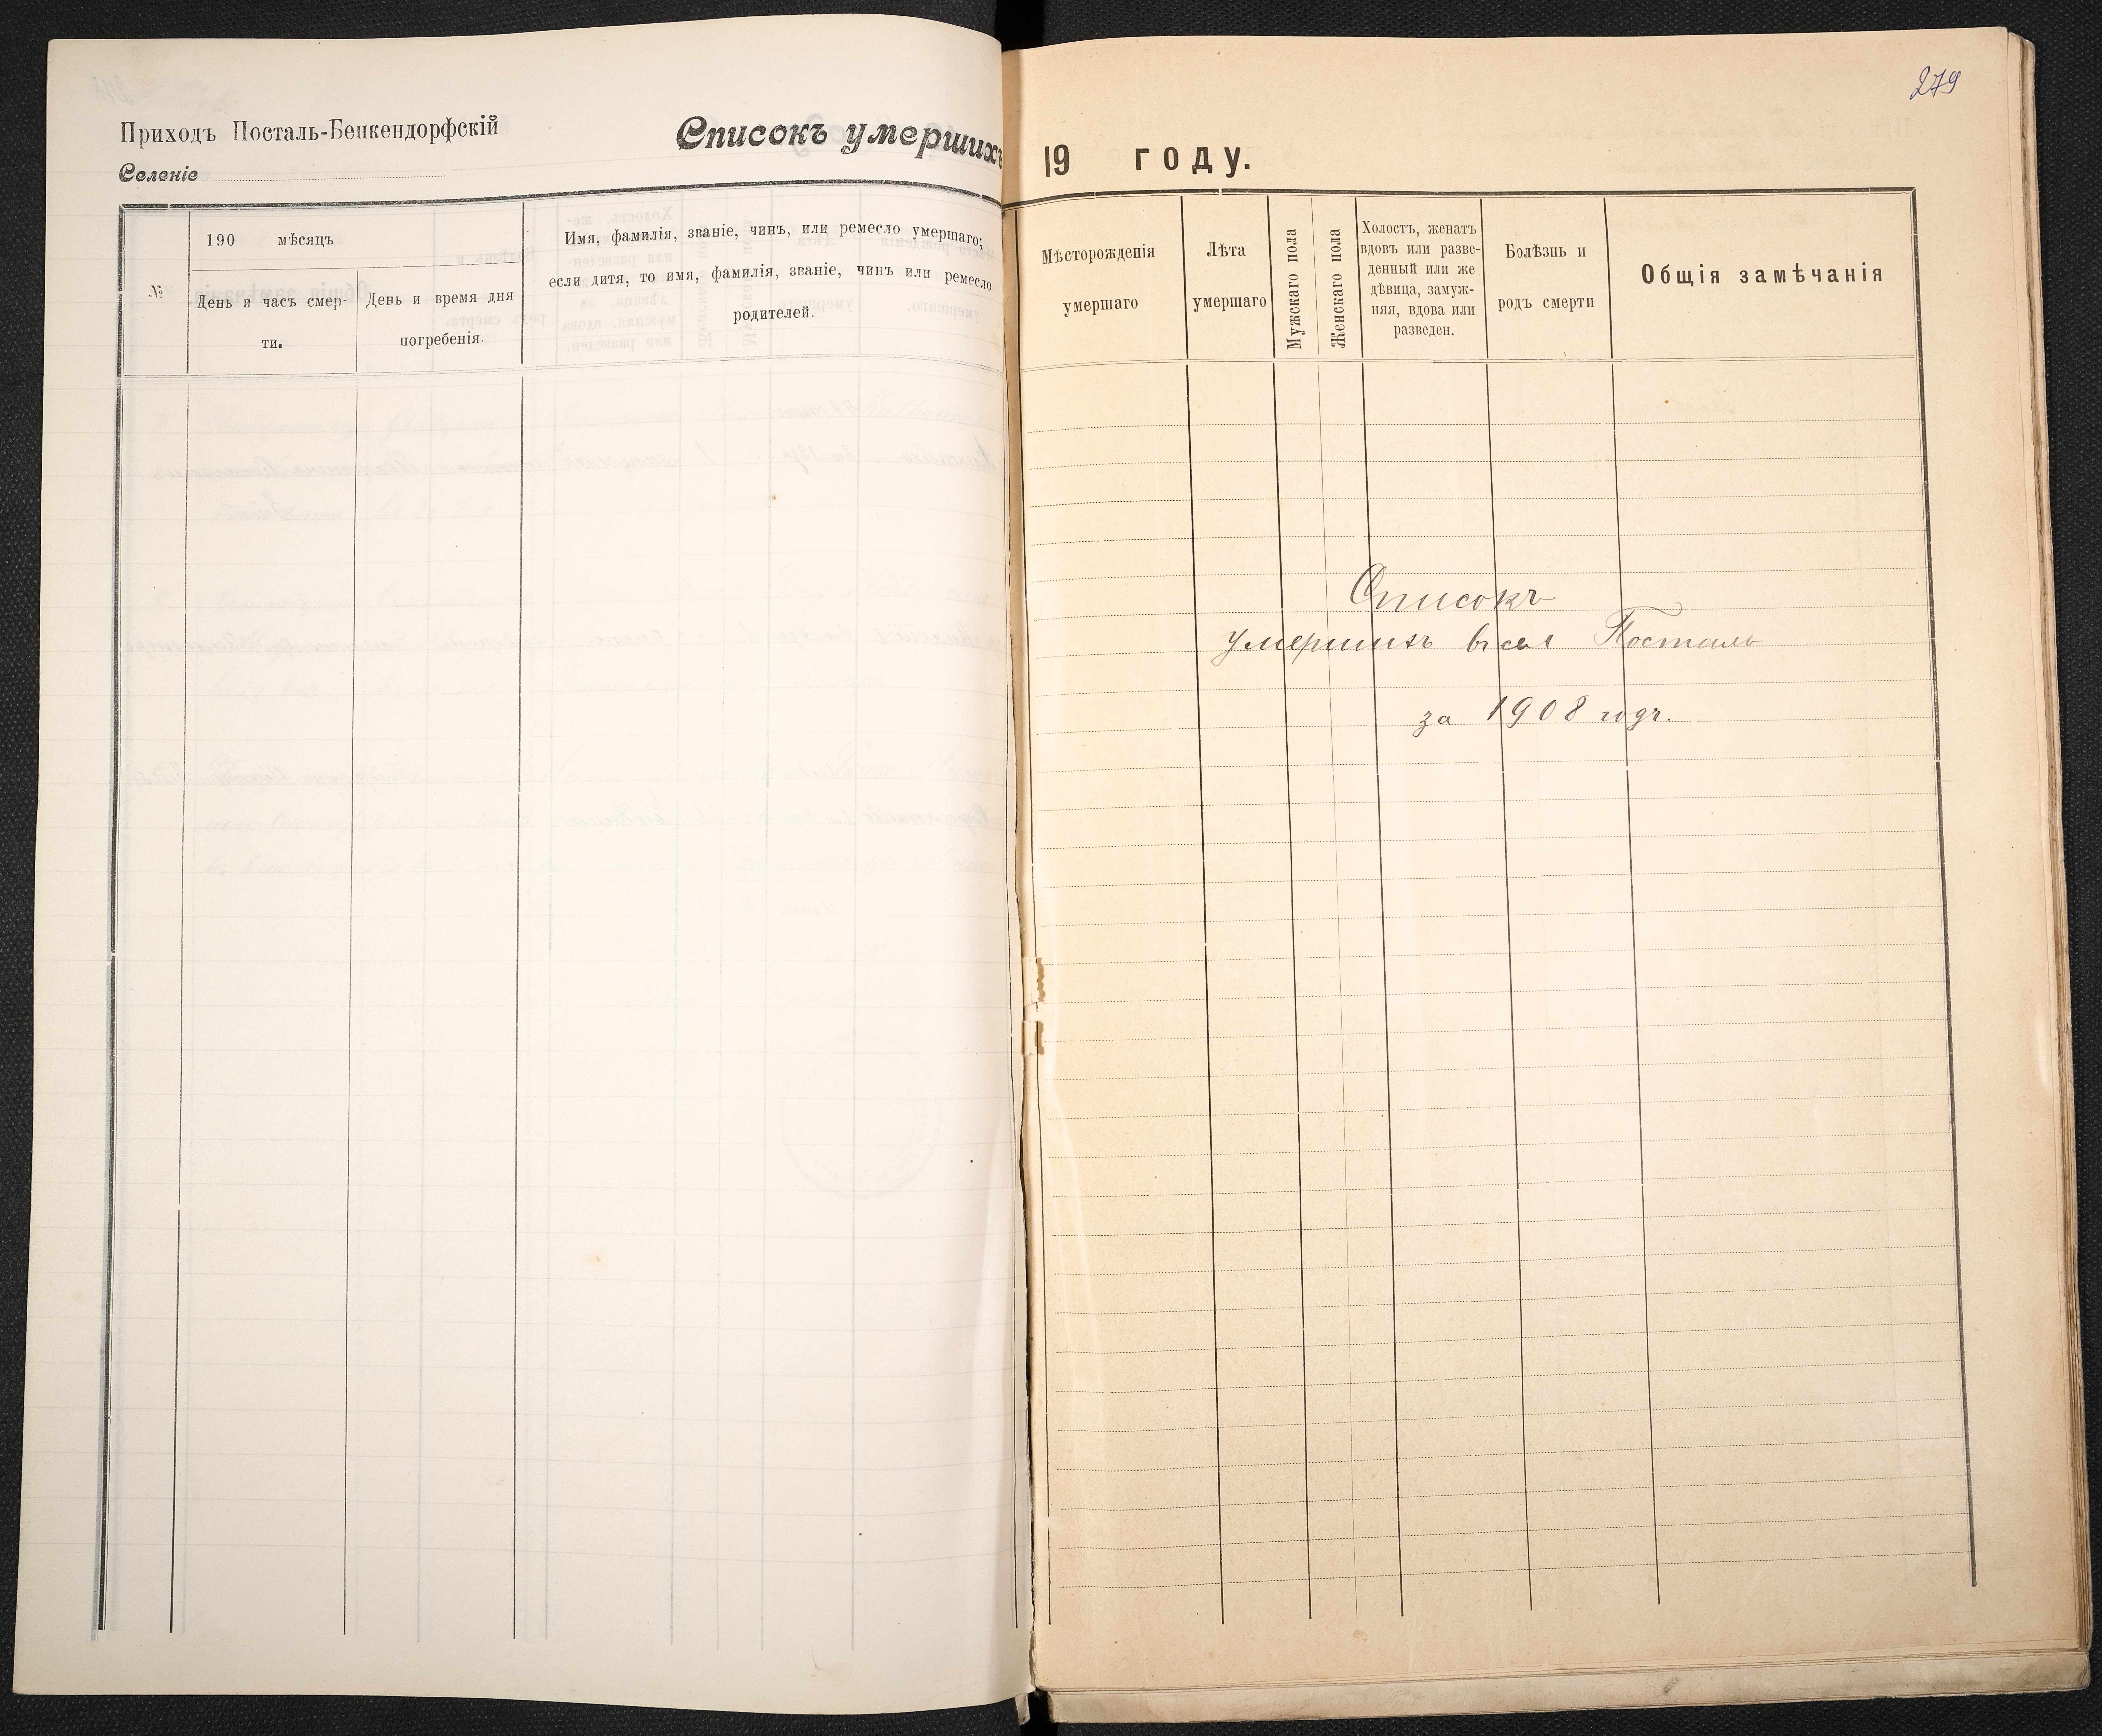 Приходъ Посталь-Бенкендорфскій
Селеніе
Списокъ умершихъ
№
190 мѣсяцъ
День и часъ смер-
ти.
День и время дня
погребенія.
Имя, фамилія, званіе, чинъ, или ремесло умершаго;
если дитя, то имя, фамилія, званіе, чинъ или ремесло
родителей.
279
19 году.
Мѣсторожденія
умершаго
Лѣта
умершаго
Мужскаго пола
Женскаго пола
Холостъ, женатъ
вдовъ или разве-
денный или же
дѣвица, замуж-
няя, вдова или
разведен.
Болѣзнь и
родъ смерти
Общія замѣчанія
Списокъ
умершихъ въ сел Посталь
за 1908 годъ.